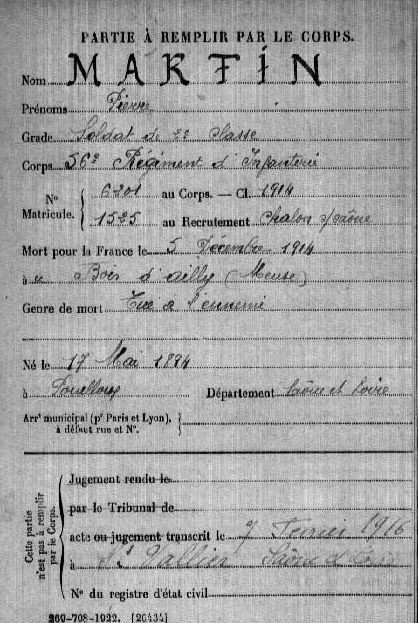 PARTIE À REMPLIR PAR LE CORPS.
Nom MARTIN
Prénoms Pierre
Grade Soldat de 2e Classe
Corps 56e Régiment d'Infanterie
No Matricule. 6201 au Corps. — Cl. 1914
1525 au Recrutement Chalon s/Saône
Mort pour la France le 5 Décembre 1914
à Bois d'ailly (Meuse)
Genre de mort Tué à l'ennemi
Né le 17 Mai 1894
à Département Saône et Loire
Arrt municipal (pr Paris et Lyon),
à défaut rue et N°.
Cette partie
n'est pas à remplir
par le Corps.
Jugement rendu le
par le Tribunal de
acte ou jugement transcrit le 7 Février 1916
à St Vallier Saône et Loire
N° du registre d'état civil
269-708-1922. [20434]